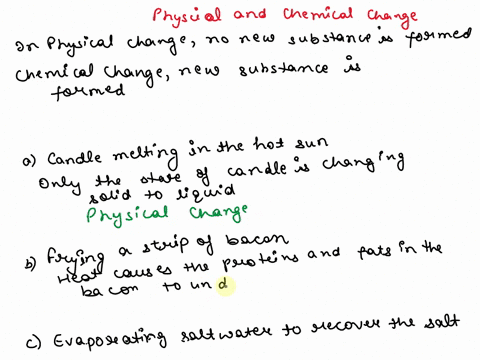 Physcial and Chemical Change
In Physical change, no new substance is formed
Chemical Change, new substance is
formed
a) Candle melting in the hot sun
Only the state of candle is changing
solid to liquid
Physical Change
b) Frying a strip of bacon
Heat causes the proteins and fats in the
bacon to und
c) Evaporating saltwater to recover the salt